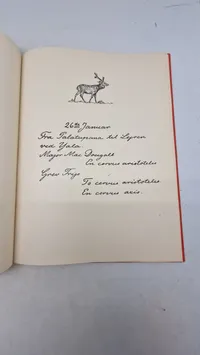 26de Januar
Fra Palatupana til Lejren
ved Yala.
Major Mac Dougall
En cervus aristotelis
Grev Frijs
To cervus aristoteles
En cervus axis.